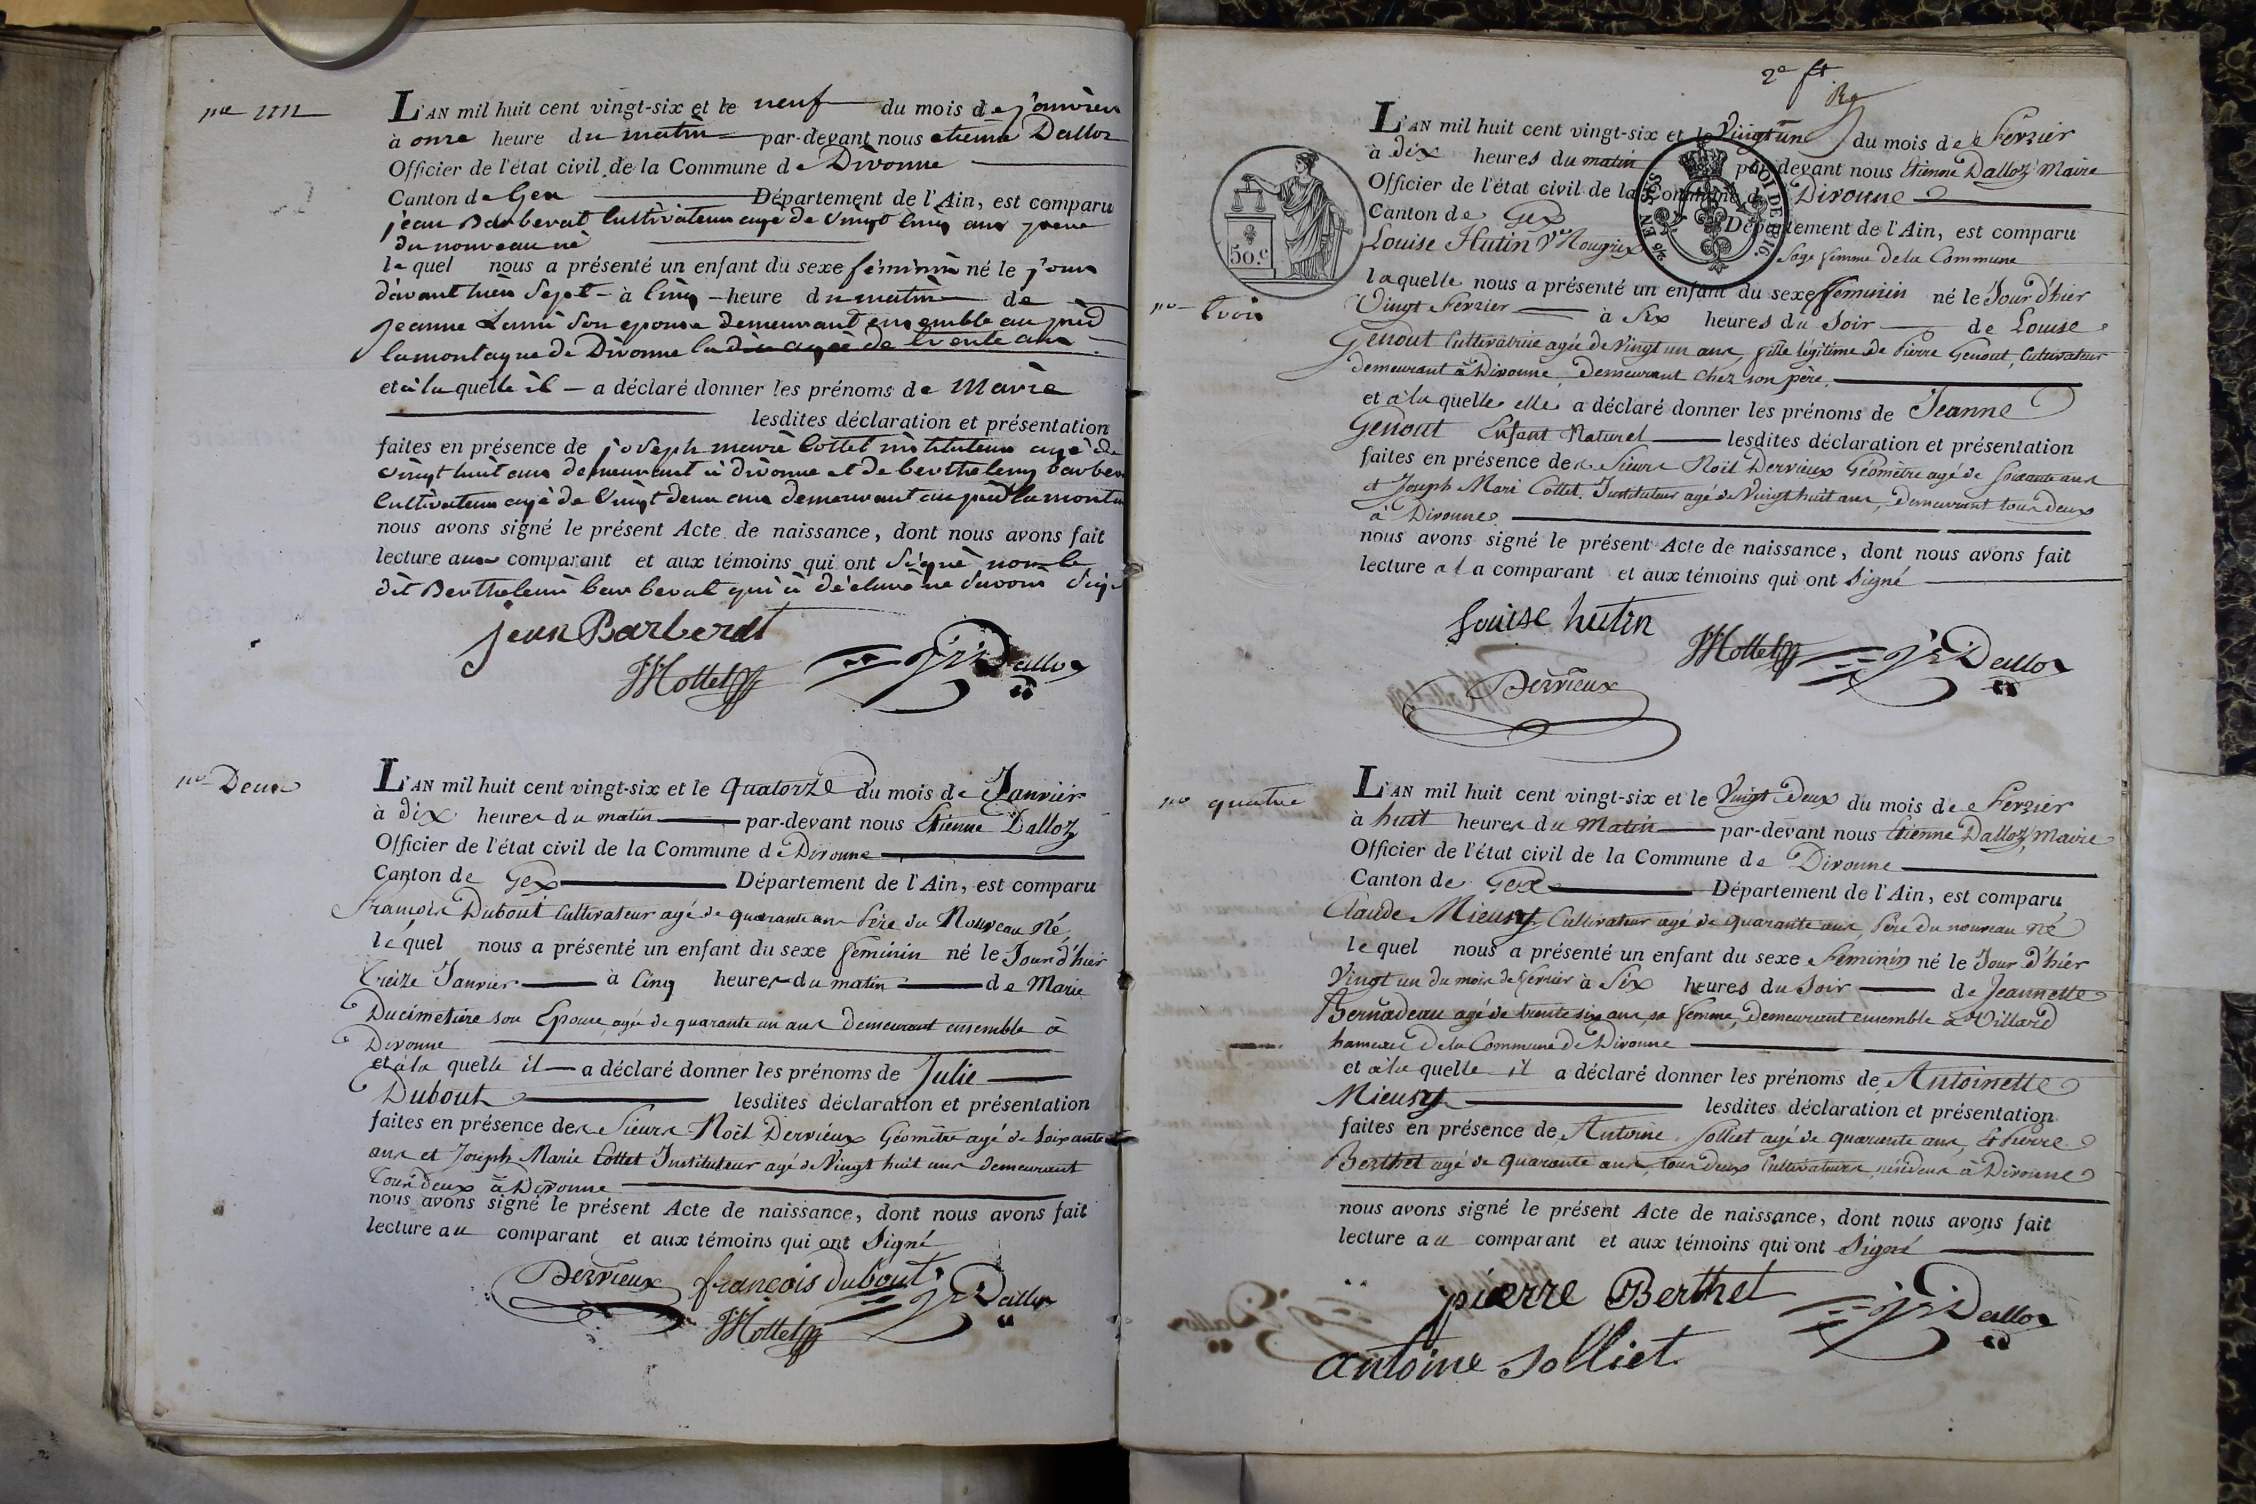 no un
L'AN mil huit cent vingt-six et le neuf du mois de janvier
à onze heure du matin par-devant nous etienne Dalloz
Officier de l'état civil de la Commune de Divonne
Canton de Gex Département de l'Ain, est comparu
jean Barberat Cultivateur agé de vingt cinq ans pere
du nouveau né
le quel nous a présenté un enfant du sexe féminin né le jour
davant hier Sept à Cinq heure du matin de
jeanne Lami Son epouse demeurant ensemble au pied
la montagne de Divonne la dite agée de trente ans
et à la quelle il a déclaré donner les prénoms de Marie
lesdites déclaration et présentation
faites en présence de joseph marie Cottet instituteur agé de
vingt huit ans demeurant à divonne et de berthelemy barber
Cultivateur agé de vingt deux ans demeurant au pied la monta
nous avons signé le présent Acte de naissance, dont nous avons fait
lecture aux comparant et aux témoins qui ont Signé non le
dit Berthelemi barberat qui à déclaré ne Savoir Sign
jean Barberat
JMCottet Dalloz
no Deux
L'AN mil huit cent vingt-six et le quatorze du mois de Janvier
à dix heures du matin par-devant nous Etienne Dalloz
Officier de l'état civil de la Commune de Divonne
Canton de Gex Département de l'Ain, est comparu
François Dubout Cultivateur agé de quarante ans Père du Nouveau Né
le quel nous a présenté un enfant du sexe féminin né le Jour d'hier
treize Janvier à Cinq heures du matin de Marie
Ducimetière son Epouse, agée de quarante un ans demeurant ensemble à
Divonne
et à la quelle il a déclaré donner les prénoms de Julie
Dubout lesdites déclaration et présentation
faites en présence des Sieurs Noël Dervieux Géomètre agé de Soixante
ans et Joseph Marie Cottet Instituteur agé de Vingt huit ans demeurant
Tous deux à Divonne
nous avons signé le présent Acte de naissance, dont nous avons fait
lecture au comparant et aux témoins qui ont Signé
Dervieux françois dubout Dalloz
JMCottet
2e ft
L'AN mil huit cent vingt-six et le Vingt un du mois de Février
à dix heures du matin par-devant nous Etienne Dalloz Maire
Officier de l'état civil de la Commune de Divonne
Canton de Gex Département de l'Ain, est comparu
Louise Hutin Ve Sage femme de la Commune
50.c
ROI DE 1816.
EN SUS
no trois
la quelle nous a présenté un enfant du sexe féminin né le Jour d'hier
Vingt Février à Six heures du Soir de Louise
Genout Cultivatrice agée de Vingt un ans, fille légitime de Pierre Genout, Cultivateur
demeurant à Divonne, demeurant chez son père,
et à la quelle elle a déclaré donner les prénoms de Jeanne
Genout Enfant Naturel lesdites déclaration et présentation
faites en présence des Sieurs Noël Dervieux Géomètre agé de Soixante ans
et Joseph Mari Cottet, Instituteur agé de Vingt huit ans, demeurant tous deux
à Divonne
nous avons signé le présent Acte de naissance, dont nous avons fait
lecture a la comparant et aux témoins qui ont Signé
Louise hutin
JMCottet Dalloz
Dervieux
no quatre
L'AN mil huit cent vingt-six et le Vingt Deux du mois de Février
à huit heures du Matin par-devant nous Etienne Dalloz, Maire
Officier de l'état civil de la Commune de Divonne
Canton de Gex Département de l'Ain, est comparu
Claude Mieusy Cultivateur agé de quarante ans, Père du nouveau Né
le quel nous a présenté un enfant du sexe Féminin né le Jour d'hier
Vingt un du mois de Février à Six heures du Soir de Jeannette
Bernadeau agé de trente six ans, sa femme, Demeurant ensemble à Villard
hameau De la Commune de Divonne
et à la quelle il a déclaré donner les prénoms de Antoinette
Mieusy lesdites déclaration et présentation
faites en présence de Antoine Solliet agé de quarante ans, Et Pierre
Berthet agé de quarante ans, tous deux Cultivateurs, résideux à Divonne
nous avons signé le présent Acte de naissance, dont nous avons fait
lecture au comparant et aux témoins qui ont Signé
pierre Berthet Dalloz
antoine Solliet